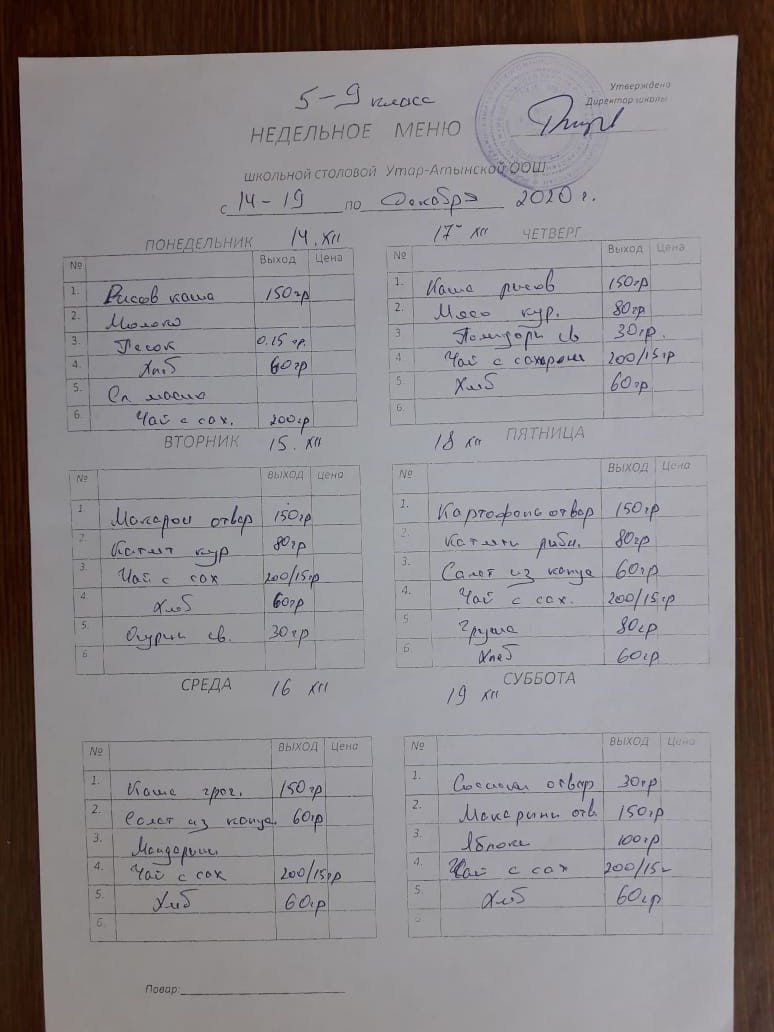 5-9 класс
Утверждено
Директор школы
НЕДЕЛЬНОЕ МЕНЮ
ШКОЛЬНОЙ СТОЛОВОЙ Утар-Атынской ООШ
с 14-19 по Декабря 2020 г.
ПОНЕДЕЛЬНИК 14. XII
№ Выход Цена
1. Рисов каша 150гр
2. Молоко
3. Песок 0.15 гр.
4. Хлеб 60гр
5. Сл масло
6. Чай с сах. 200гр
ВТОРНИК 15. XII
№ ВЫХОД Цена
1 Макарон отвар 150гр
2. Катлет кур 80гр
3. Чай с сах 200/15гр
4. Хлеб 60гр
5. Огурцы св. 30гр
6
СРЕДА 16 XII
№ ВЫХОД Цена
1. Каша греч. 150гр
2. Салат из капус. 60гр
3. Мандарины
4. Чай с сах 200/15гр
5. Хлеб 60гр
6.
17 XII ЧЕТВЕРГ
№ ВЫХОД Цена
1. Каша рисов 150гр
2. Мясо кур. 80гр
3 Помидоры св 30гр.
4 Чай с сахаром 200/15гр
5. Хлеб 60гр
6.
18 XII ПЯТНИЦА
№ ВЫХОД Цена
1. Картофель отвар 150гр
2. Катлеты рибн. 80гр
3. Салат из капус 60гр
4. Чай с сах. 200/15гр
5 Груша 80гр
6. Хлеб 60гр
19 XII СУББОТА
№ ВЫХОД Цена
1. Сосиски отвар 30гр
2. Макарины отв 150гр
3. Яблоки 100гр
4. Чай с сах 200/15г
5. Хлеб 60гр
6
Повар: